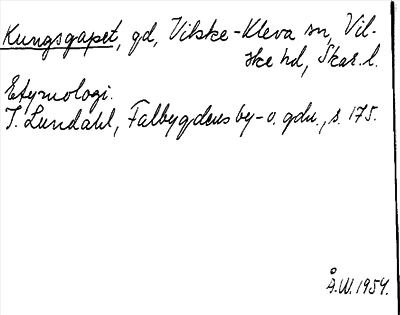 Kungsgapet, gd, Vilske-Kleva sn, Vil-
ske hd, Skar.l.
Etymologi.
I. Lundahl, Falbygdens by-o. gdn., s. 175.
Å.W. 1954.